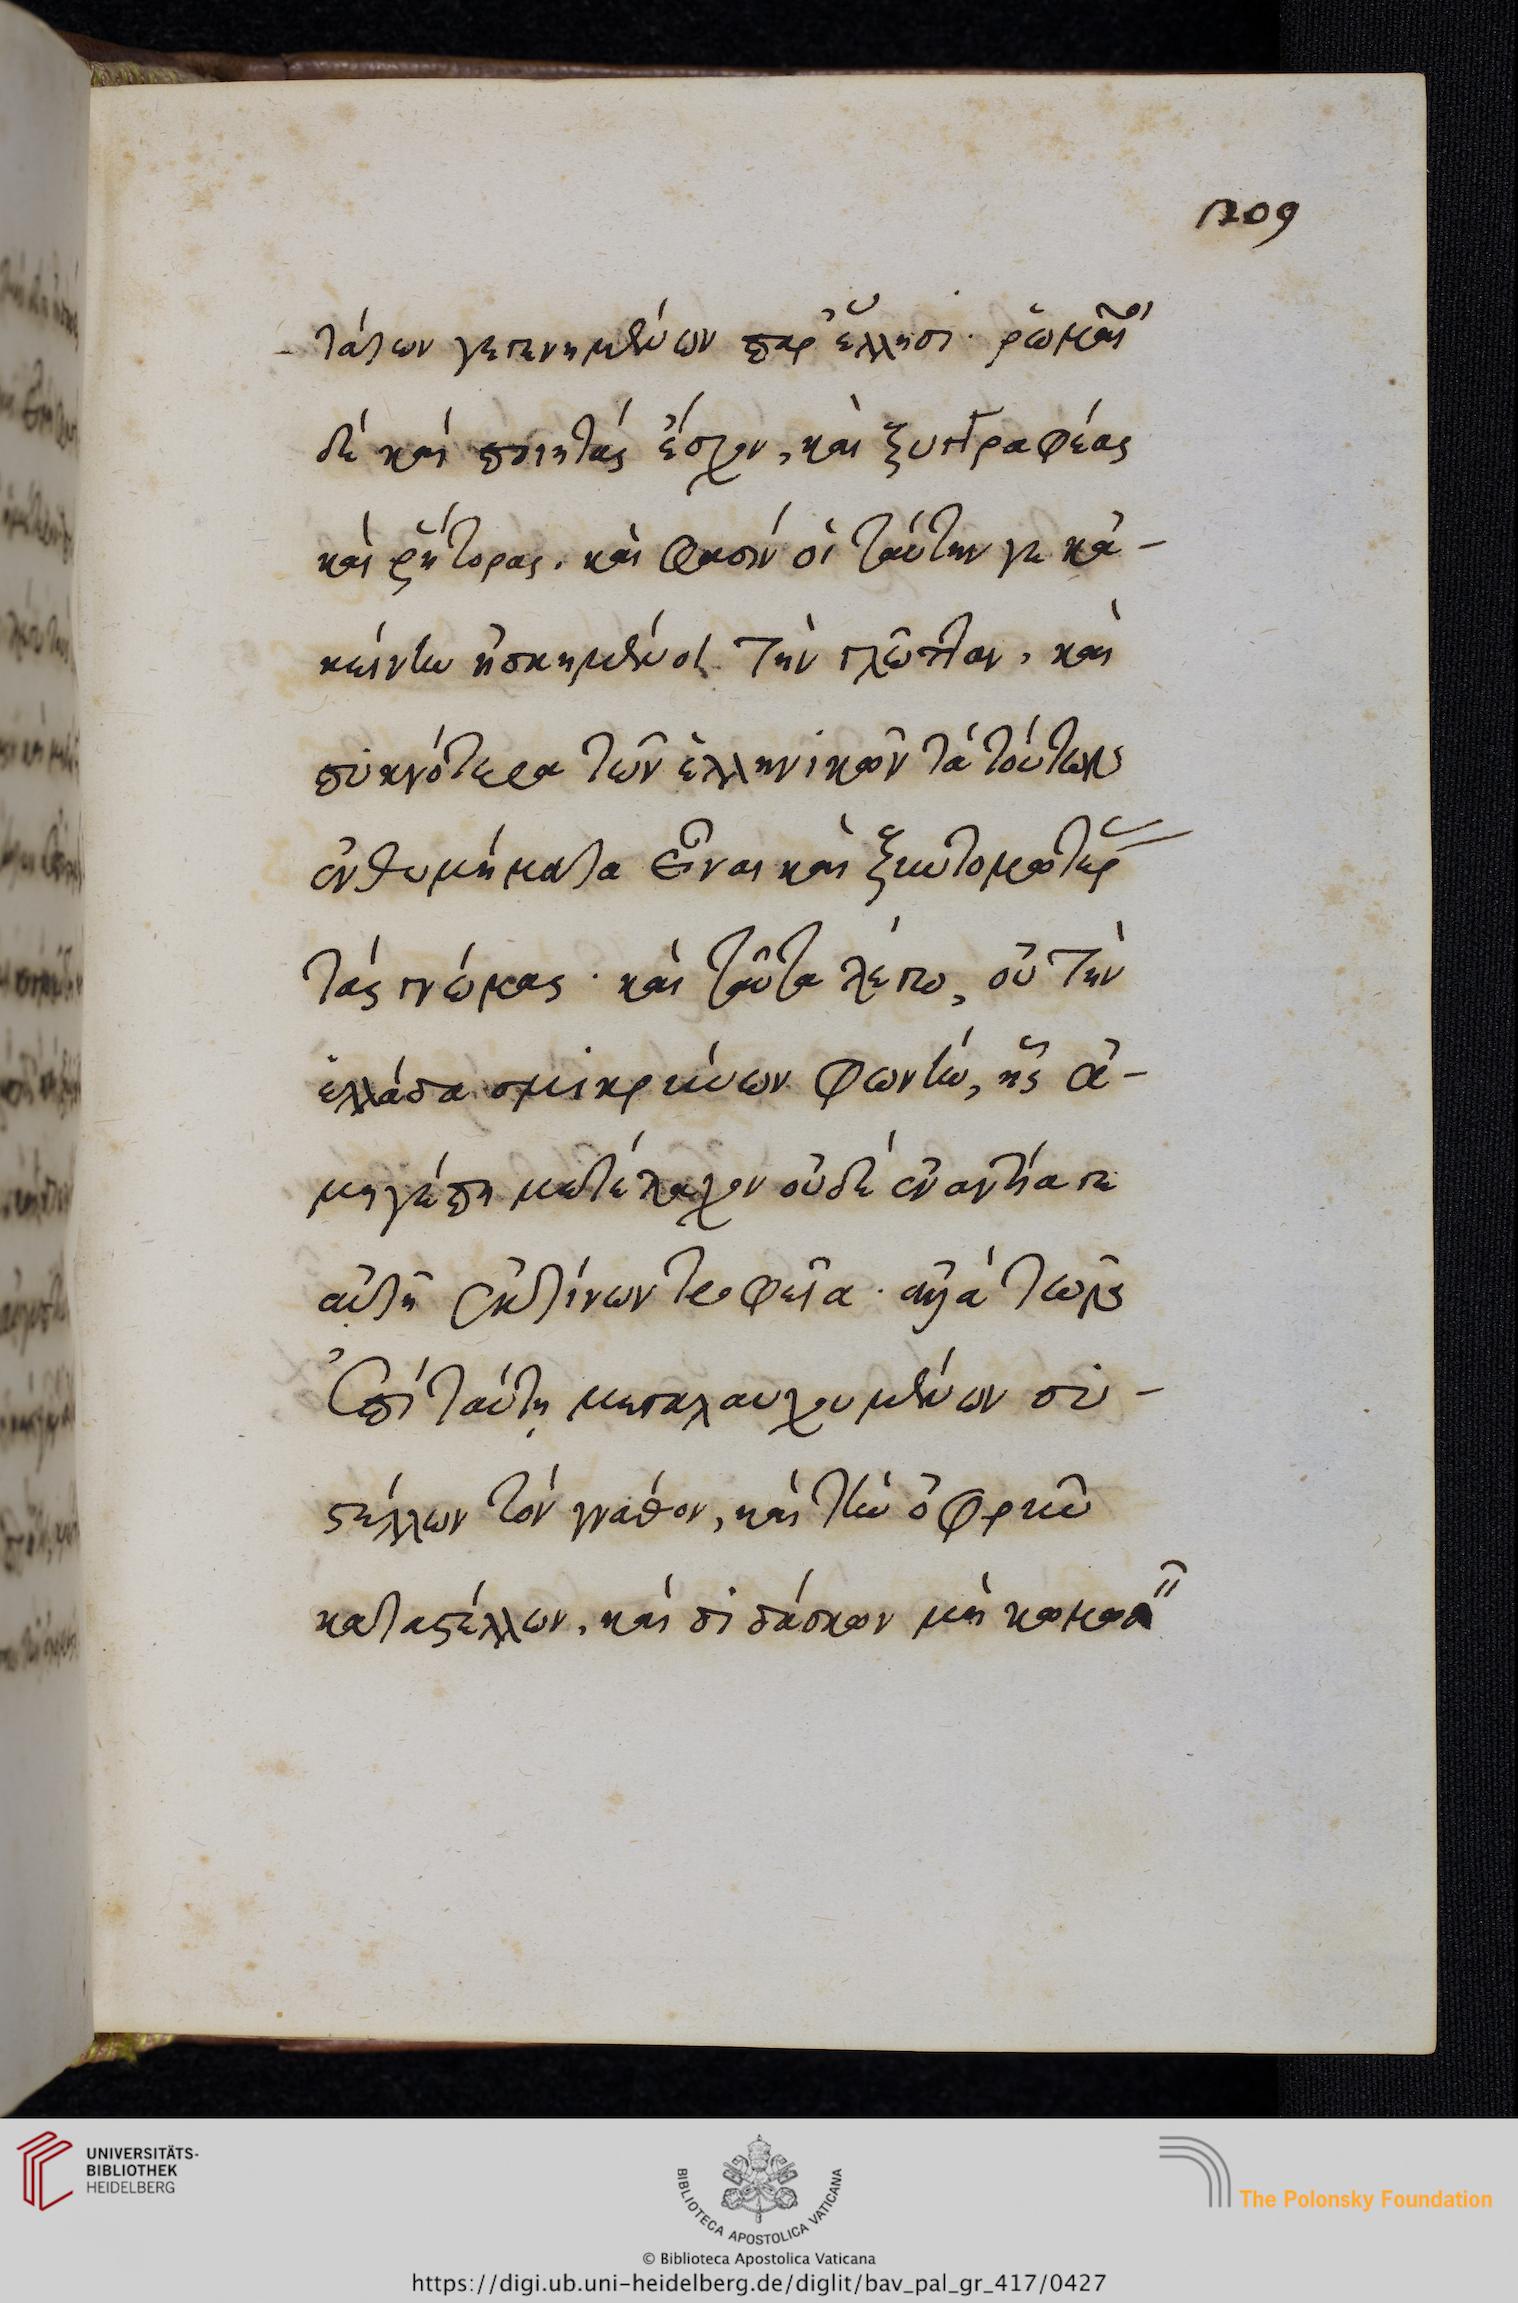 209
τάτων γεγενημένων παρ' ἕλλησι. ῥωμαῖοι
δὲ καὶ ποιητὰς ἔσχον, καὶ ξυγγραφέας
καὶ ῥήτορας. καὶ φασὶν οἱ ταύτην γε κἀ-
κείνην ἠσκημένοι τὴν γλῶτταν, καὶ
πυκνότερα τῶν ἑλληνικῶν τὰ τούτων
ἐνθυμήματα εἶναι καὶ ξυντομωτέρας
τὰς γνώμας. καὶ ταῦτα λέγω, οὐ τὴν
ἑλλάδα σμικρύνων φωνὴν, ἧς ἀ-
μηγέπη μετέλαχον οὐδὲ ἐναντία γε
αὐτῇ ἐκτίνων τροφεῖα. ἀλλὰ τῶν
ἐπὶ ταύτῃ μεγαλαυχουμένων συ-
στέλλων τὸν γνάθον, καὶ τὴν ὀφρῦν
καταστέλλων, καὶ διδάσκων μὴ
UNIVERSITÄTS-
BIBLIOTHEK
HEIDELBERG
BIBLIOTECA APOSTOLICA VATICANA
The Polonsky Foundation
© Biblioteca Apostolica Vaticana
https://digi.ub.uni-heidelberg.de/diglit/bav_pal_gr_417/0427